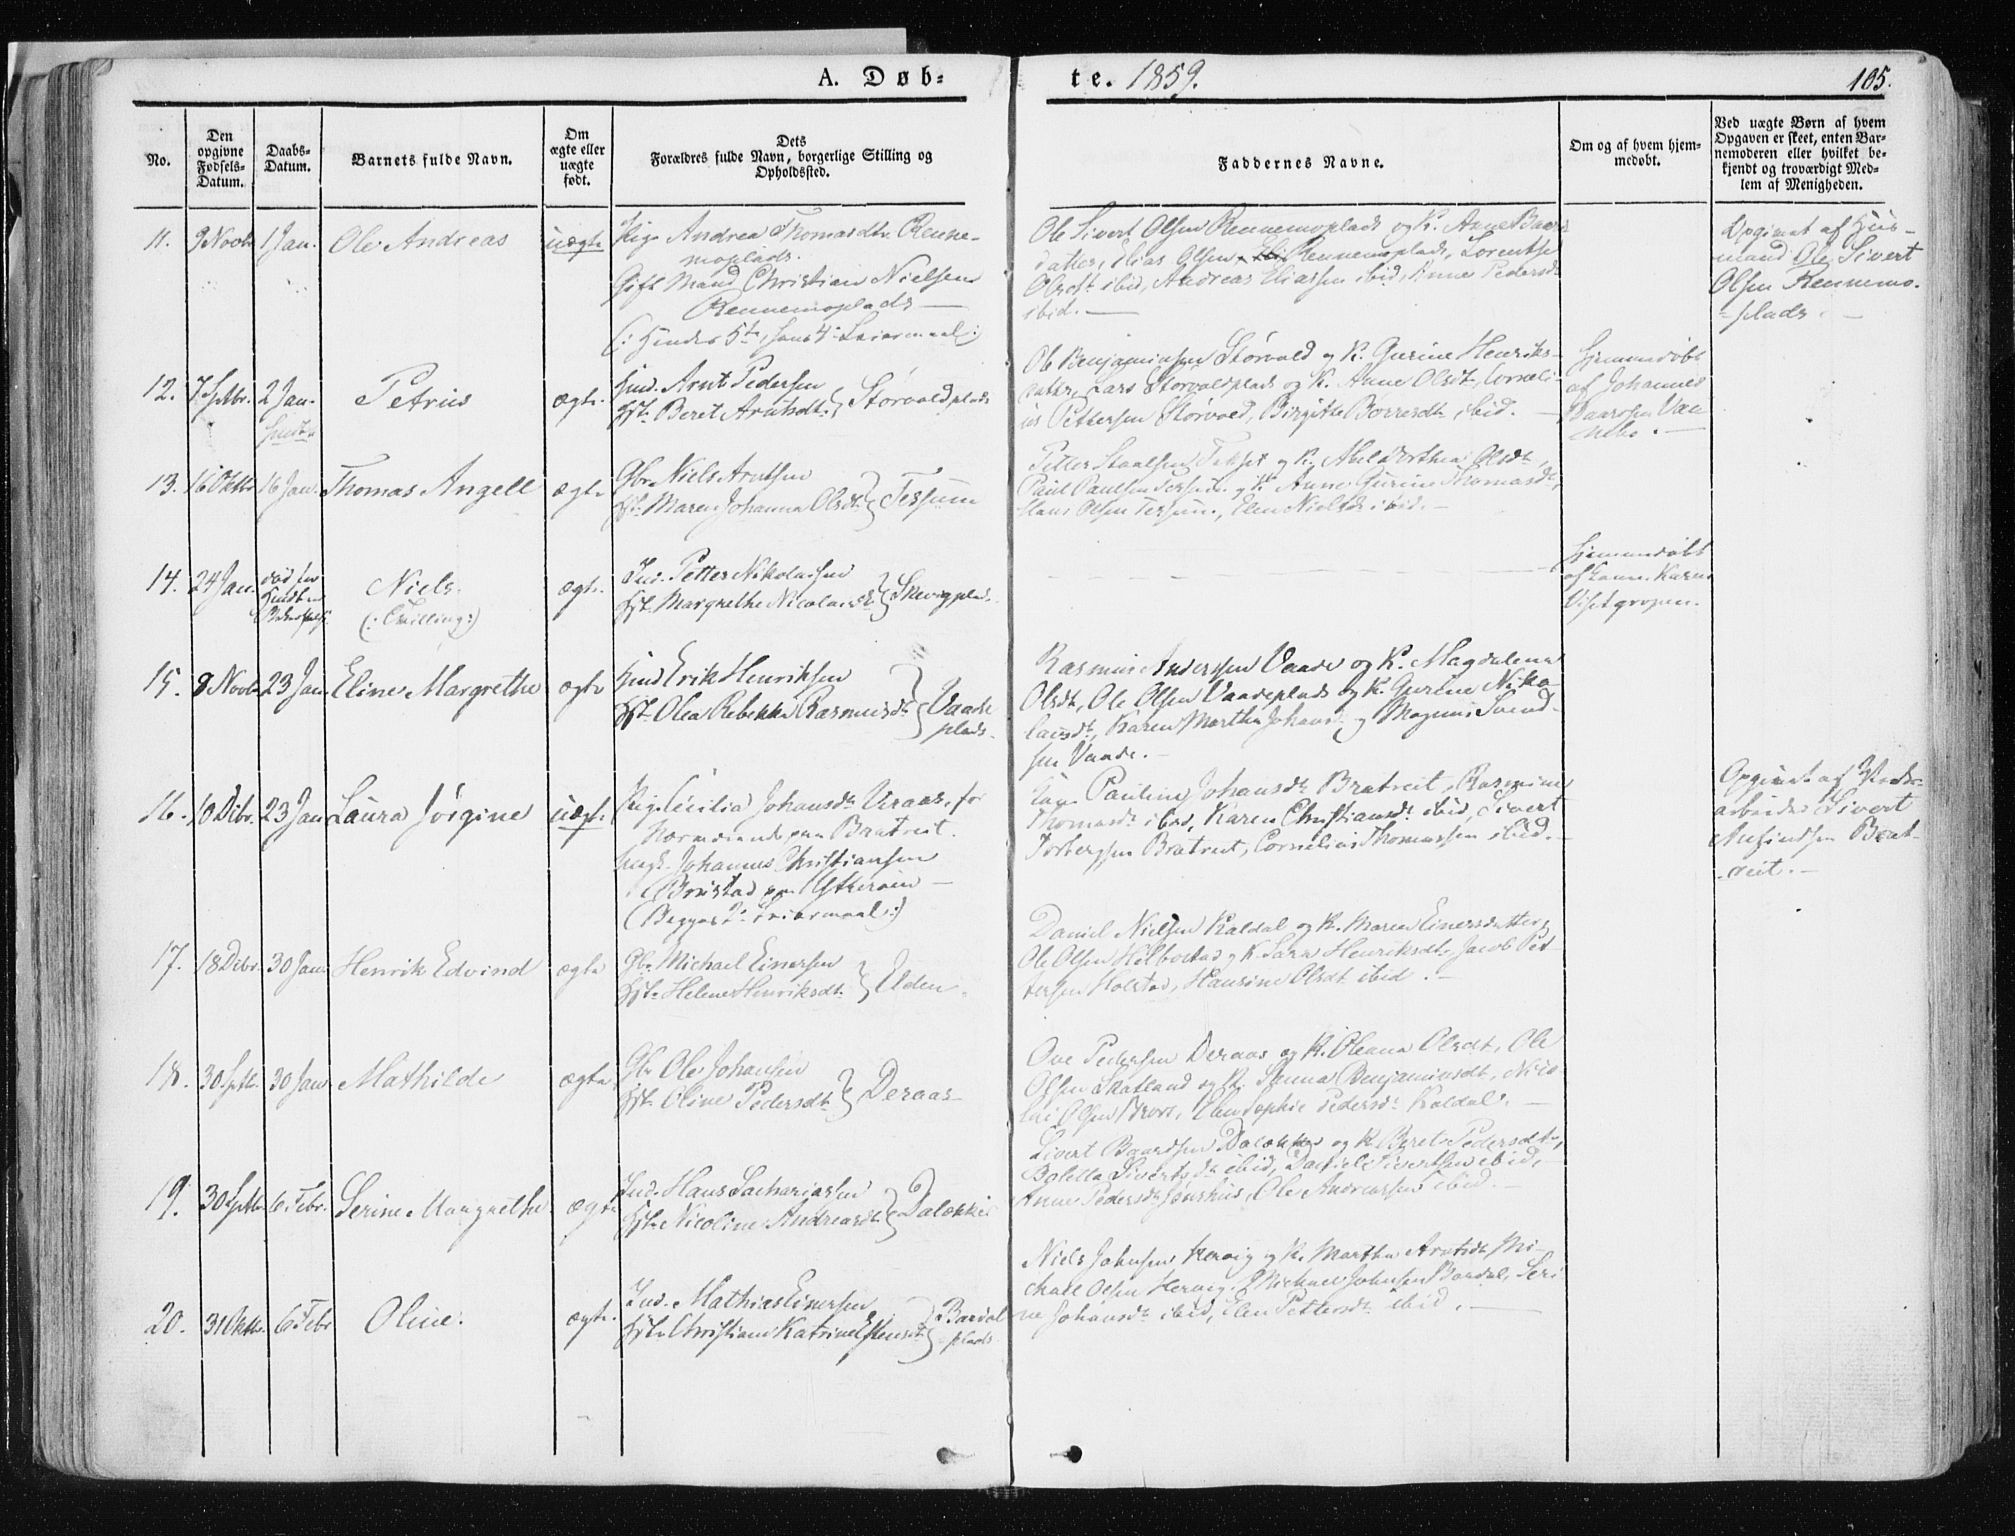 A. Døb-
te. 1859.
105.
No.
Den opgivne Fødsels-Datum.
Daabs-Datum.
Barnets fulde Navn.
Om ægte eller uægte født.
Dets
Forældres fulde Navn, borgerlige Stilling og
Opholdssted.
Faddernes Navne.
Om og af hvem hjem-
medøbt.
Ved uægte Børn af hvem
Opgaven er skeet, enten Bar-
nemoderen eller hvilket be-
kjendt og troværdigt Med-
lem af Menigheden.
11. 9 Novbr 1 Jan. Ole Andreas uægte
Pige Andrea Thomasdtr. Renne-
moplads.
Gift Mand Christian Nielsen
Rennemoplads
(: Hendes 5te, hans 4de Leiermaal:)
Ole Sivert Olsen Rennemoplads og K. Anne Baards
datter, Elias Olsen Rennemoplads, Lorentse
Olsdt ibid, Andreas Eliassen ibid, Anne Pedersdt
ibid.
Opgivet af Hus-
mand Ole Sivert
Olsen Rennemo-
plads.
12. 7 Sptbr. 2 Jan. Petrius ægte
Hmd. Arnt Pedersen
Hst. Beret Arntsdt. } Størvoldplads
Ole Benjaminsen Størvold og K. Gurine Henriks-
datter, Lars Størvoldplads og K. Anne Olsdt, Corneli-
us Pettersen Størvold, Birgitte Børresdt. ibid.
Hjemmedøbt
af Johannes
13. 16 Oktbr 16 Jan. Thomas Angell ægte
Gbr. Niels Arntsen
Hst. Maren Johanna Olsdt } Tessum
Petter Staalsen og K. Abel Dorthea Olsdt,
Paul Paulsen og K. Anne Gurine Thomasdt,
Hans Olsen Tessum, Elen Nielsdt ibid.
14. 24 Jan. død før Niels ægte
(: Tvilling:)
Ind. Petter Nikolaisen
Hst. Margrethe Nicolaisdt } Skevigplads
Hjemmedøbt
15. 8 Novbr 23 Jan Eline Margrethe ægte
Hmd Erik Henriksen
Hst. Olea Rebekka Rasmusdt } Vaade
plads.
Rasmus Andersen Vaade og K. Magdalena
Olsdt, Ole Olsen Vaadeplads og K. Gurine Niko-
laisdt, Karen Martha Johansdt og Magnus Svend-
sen Vaade.
16. 10 Dcbr. 23 Jan Laura Jørgine uægte
Pige Cecilia Johansdt Veraas, for
Nærværende paa Bratreit.
Ungk. Johannes Christiansen
Brustad paa Ytterøen
(Begges 2. Leiermaal:)
Pauline Johansdt Bratreit, Rasmine
Thomasdt ibid, Karen Christiansdt ibid, Sivert
Torbergsen Bratreit, Cornelius Thomassen ibid.
Opgivet af
arbeider Sivert
Anfindsen Brat-
reit.
17. 18 Dcbr. 30 Jan. Henrik Edvind ægte
Gbr. Michael Einersen
Hst. Helene Henriksdt. } Elden
Daniel Nielsen Kaldal og K. Maren Einersdatter,
Ole Olsen Hilbostad og K. Sara Henriksdt. Jacob Pet-
tersen Holstad, Hansine Olsdt ibid.
18. 30 Sptb. 30 Jan Mathilde ægte
Gbr Ole Johansen
Hst. Oline Pedersdt. } Deraas
Ove Pedersen Deraas og K. Oleana Olsdt, Ole
Olsen Skatland og K. Anna Benjaminsdt, Nico-
lai Olsen, Elen Sophie Pedersdt Kaldal.
19. 30 Sptbr 6 Febr. Serine Margrethe ægte
Ind. Hans Zachariasen
Hst. Nicoline Andreasdt } Dalækkie
Sivert Baardsen Dalækkie og K. Beret Pedersdt,
Boletta Sivertsdt. ibid, Daniel Sivertsen ibid,
Anne Pedersdt Jonshus, Ole Andreassen ibid.
20. 31 Oktbr. 6 Febr Oline. ægte
Ind. Mathias Einersen
Hst. Christiane Katrine Estensdt } Bardal
plads
Niels Johnsen Hervig og K. Martha Arntsdt. Mi-
chael Olsen Hervig, Michael Johnsen Bardal, Seri-
ne Johansdt. ibid, Elen Pettersdt. ibid.